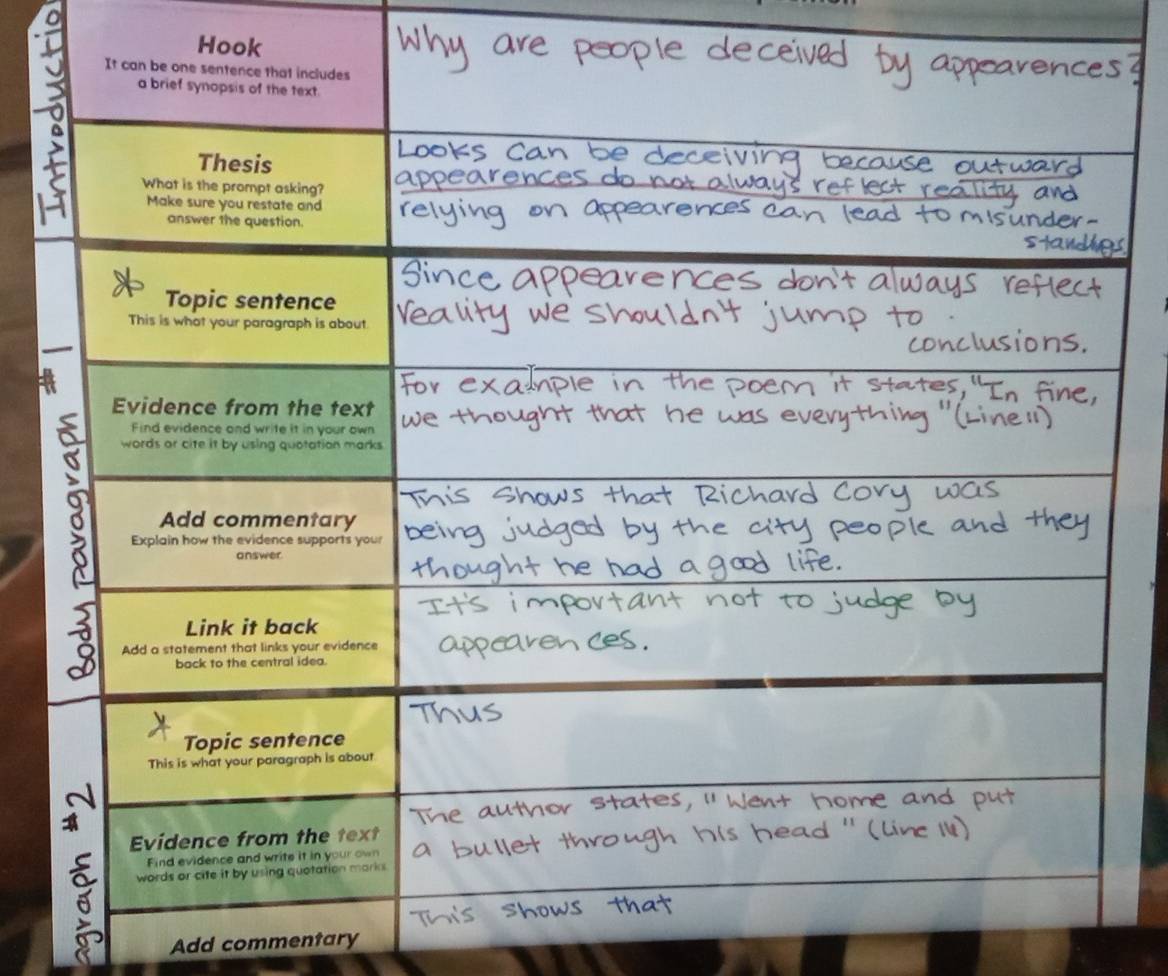 Introductio
Hook
It can be one sentence that includes
a brief synopsis of the text.
Why are people deceived by appearences?
Thesis
What is the prompt asking?
Make sure you restate and
answer the question.
Looks can be deceiving because outward
appearences do not always reflect reality and
relying on appearences can lead to misunder-
standings.
Body paragraph #1
Topic sentence
This is what your paragraph is about.
Since appearences don't always reflect
reality we shouldn't jump to
conclusions.
Evidence from the text
Find evidence and write it in your own
words or cite it by using quotation marks.
For example in the poem it states, "In fine,
we thought that he was everything" (Line 11)
Add commentary
Explain how the evidence supports your
answer.
This shows that Richard Cory was
being judged by the city people and they
thought he had a good life.
Link it back
Add a statement that links your evidence
back to the central idea.
It's important not to judge by
appearences.
agraph #2
Topic sentence
This is what your paragraph is about.
Thus
Evidence from the text
Find evidence and write it in your own
words or cite it by using quotation marks.
The author states, "Went home and put
a bullet through his head" (Line 14)
Add commentary
This shows that